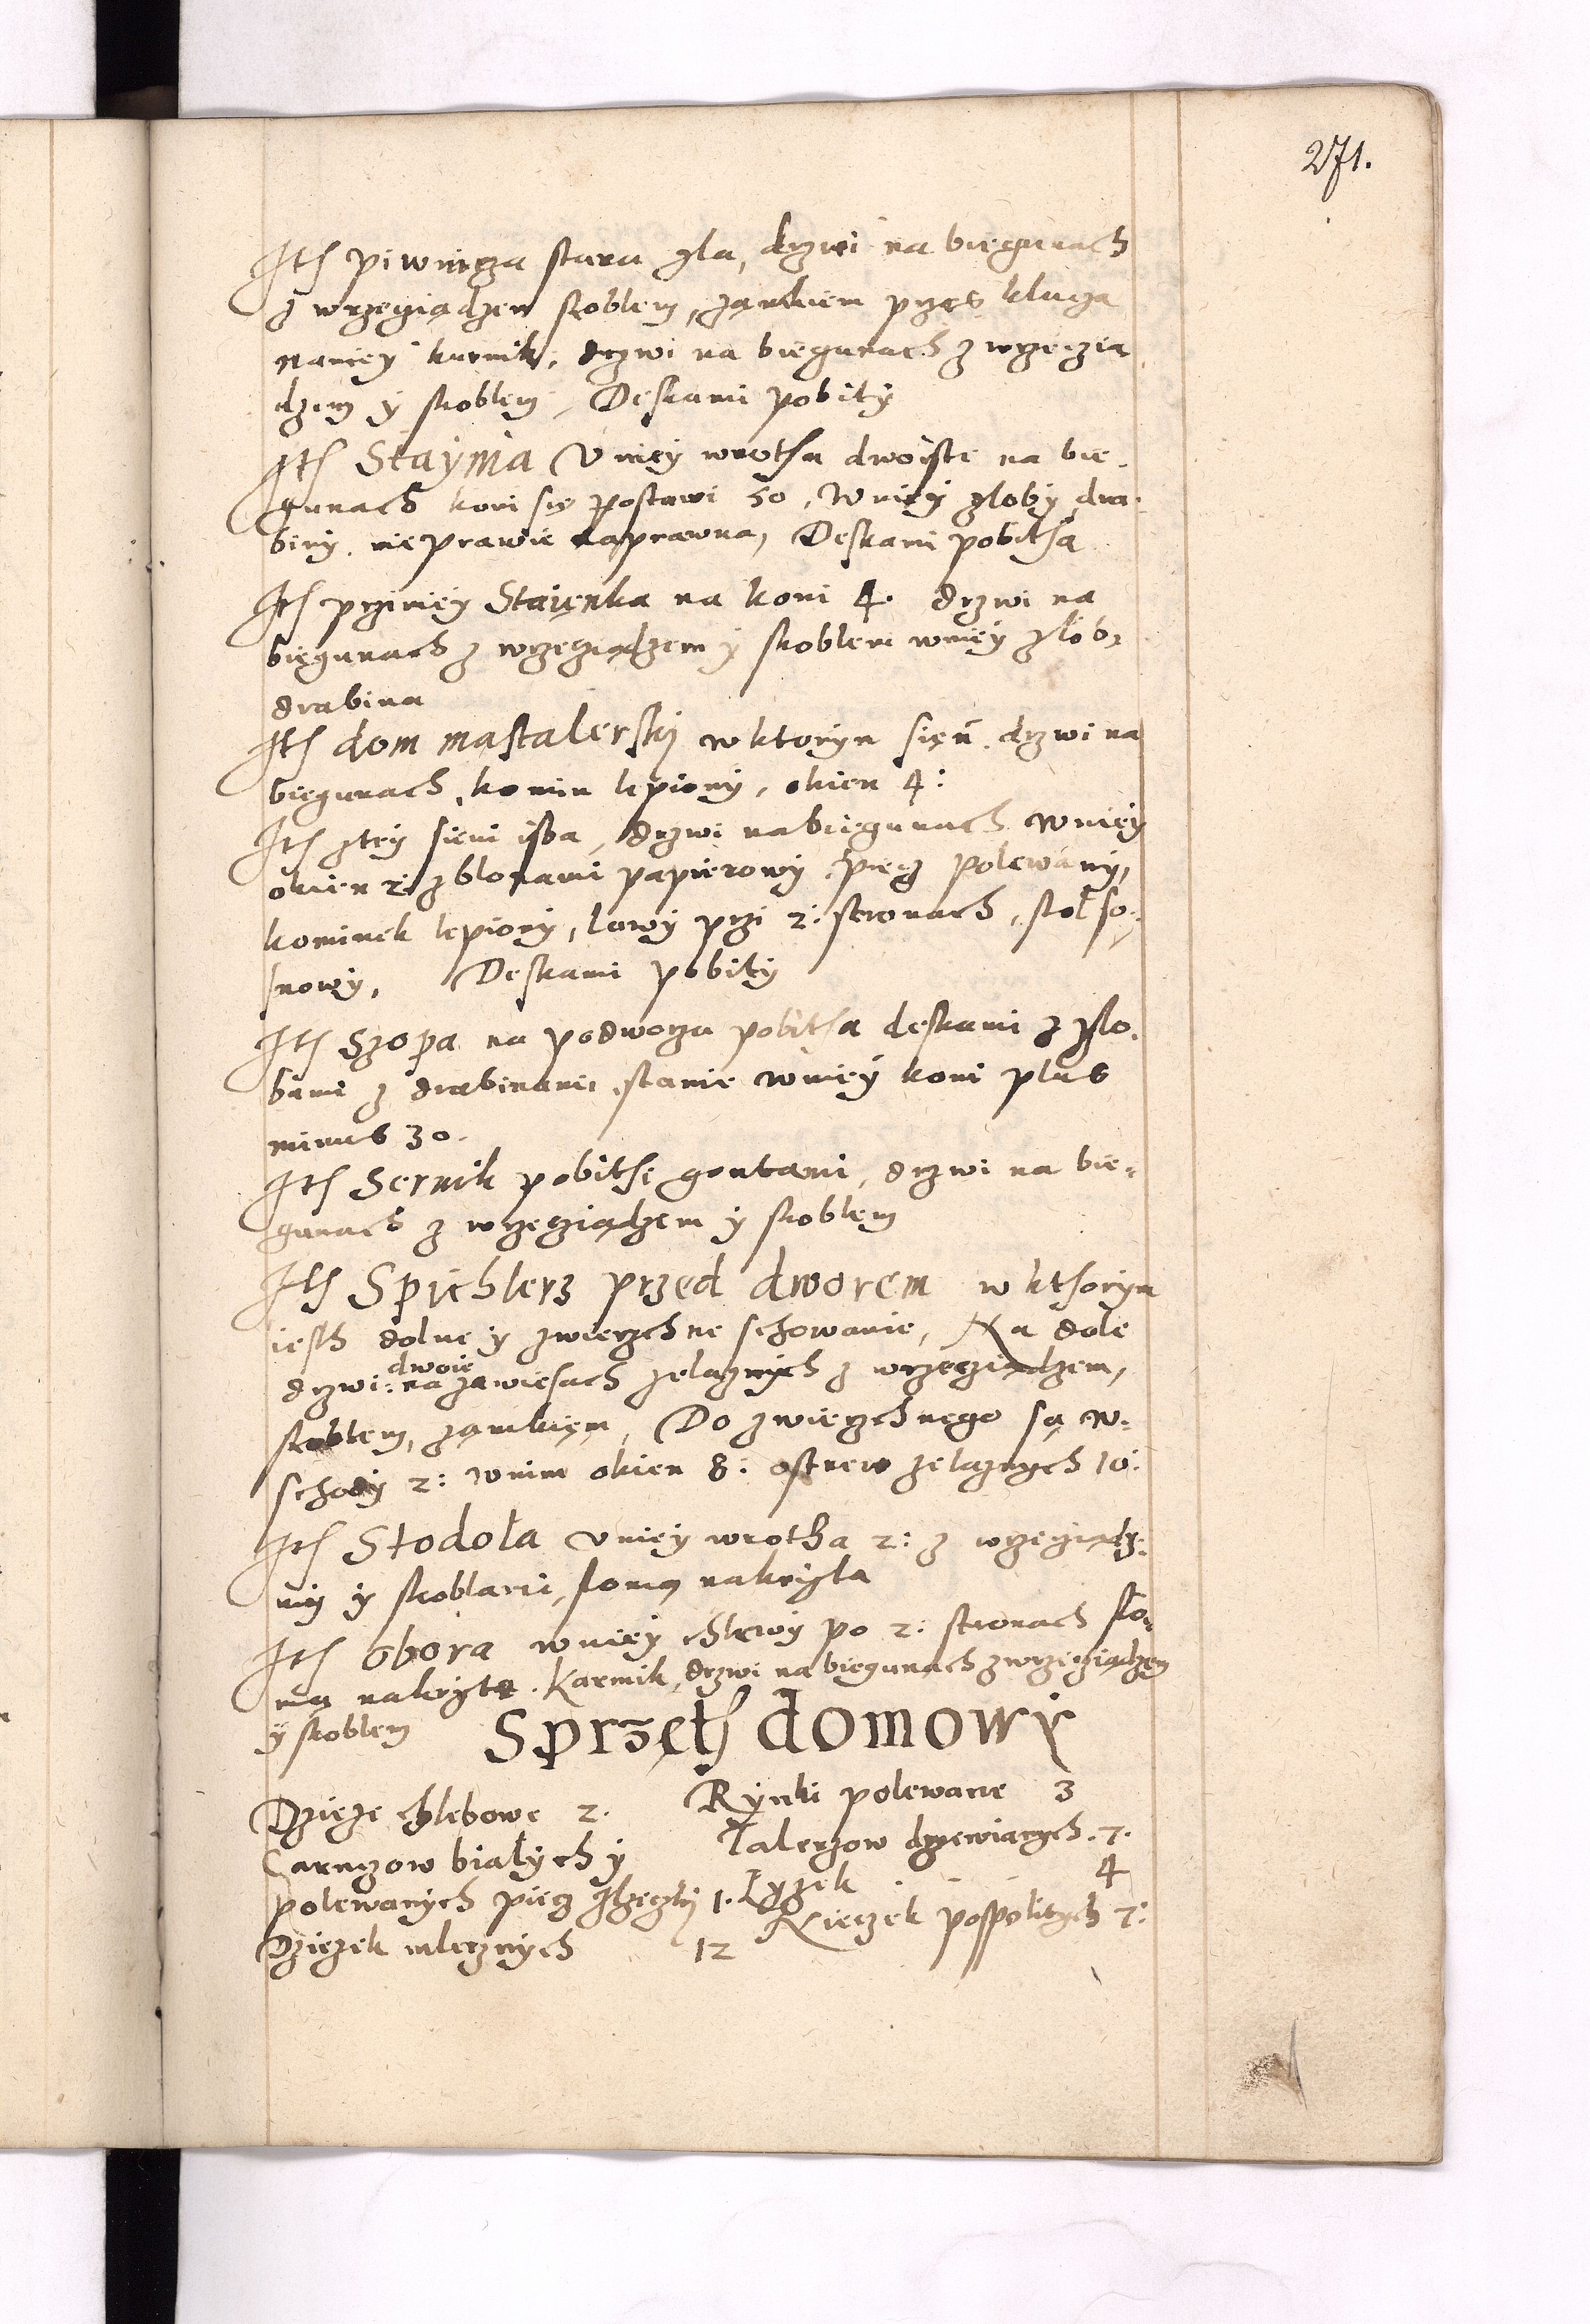 271.
Ith piwnicza stara zla, drzwi na biegunach
z wrzecziądzem skoblem, zamkiem przes klucza
naniey kurnik, drzwi na biegunach z wrzeczią
dzem y skoblem, Deskami pobity
Ith Staynia Vniey wrotha dwoiste na bie-
gunach koni się postawi 50, Wniey zloby dra-
biny nieprawie naprawna, Deskami pobitha
Ith przi niey Staięnka na koni 4. drzwi na
biegunach z wrzecziądzem y skoblem wniey zlób,
drabina
Ith dom mastalerski w ktorym sięń drzwi na
biegunach, komin lepiony, okien 4:
Ith ztey sieni isba, drzwi na biegunach wniey
okien 2: z blonami papierowy, piecz polewany,
kominek lepiony, lawy przi 2: stronach, stoł so-
snowy, Deskami pobity
Ith Szopa na podworzu pobitha deskami z zlo-
bami z drabinami, stanie wniey koni plus
minus 30.
Ith Sernik pobithi gontami, drzwi na bie-
gunach z wrzecziądzem y skoblem
Ith Spichlerz przed dworem w kthorym
iesth dolne y zwierzchne schowanie, Na dole
drzwi: dwoie na zawiesach zelaznych z wrzecziądzem,
skoblem, zamkiem, Do zwierzchnego są w-
schody 2: wnim okien 8: ostrew zelaznych 10:
Ith Stodoła vniey wrotha 2: z wrzeciądz-
mi y skoblami, słomą nakryta
Ith Obora wniey chlewy po 2: stronach sło-
mą nakryte. Karmik, drzwi na biegunach z wrzecziądzem
y skoblem
Sprzęth domowy
Dzieze chlebowe 2.
Garnczow białych y
polewanych piecz zlzeczty 1.
Dzieżek mlecznych 12
Rynki polewane 3
Talerzow drzewianych 7.
Łyżek 4
Nieczek pospolitych 7: